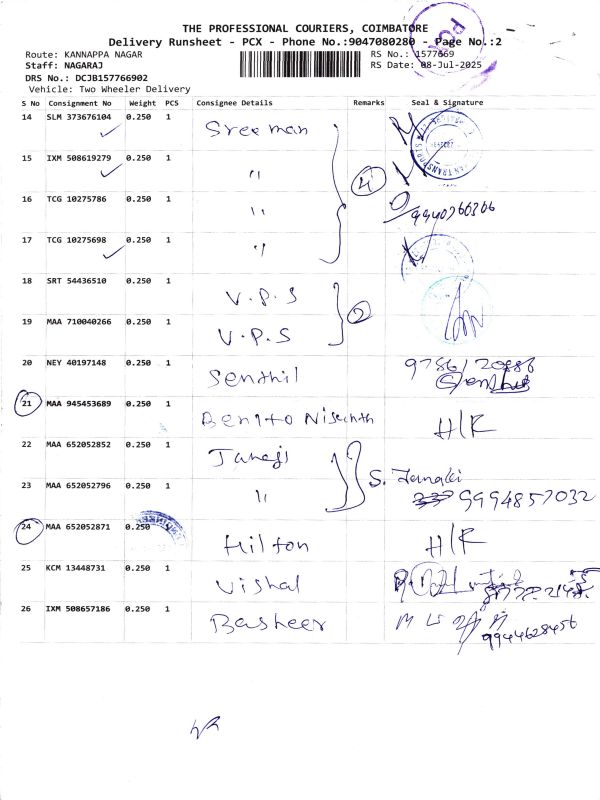 THE PROFESSIONAL COURIERS, COIMBATORE
Delivery Runsheet - PCX - Phone No.:9047080280 - Page No.:2
PCX
Route: KANNAPPA NAGAR
RS No.: 1577669
Staff: NAGARAJ
RS Date: 08-Jul-2025
DRS No.: DCJB157766902
Vehicle: Two Wheeler Delivery
S No Consignment No Weight PCS Consignee Details Remarks Seal & Signature
14 SLM 373676104 0.250 1 Sreeman
15 IXM 508619279 0.250 1 "
4
16 TCG 10275786 0.250 1 "
17 TCG 10275698 0.250 1 "
18 SRT 54436510 0.250 1 V.P.S
2
19 MAA 710040266 0.250 1 V.P.S
20 NEY 40197148 0.250 1 Senthil
21 MAA 945453689 0.250 1 Benito Nisanth H/R
22 MAA 652052852 0.250 1 Janagi S. Janaki
23 MAA 652052796 0.250 1 " 9994857032
24 MAA 652052871 0.250 Hilton H/R
25 KCM 13448731 0.250 1 Vishal
26 IXM 508657186 0.250 1 Basheer
9944628456